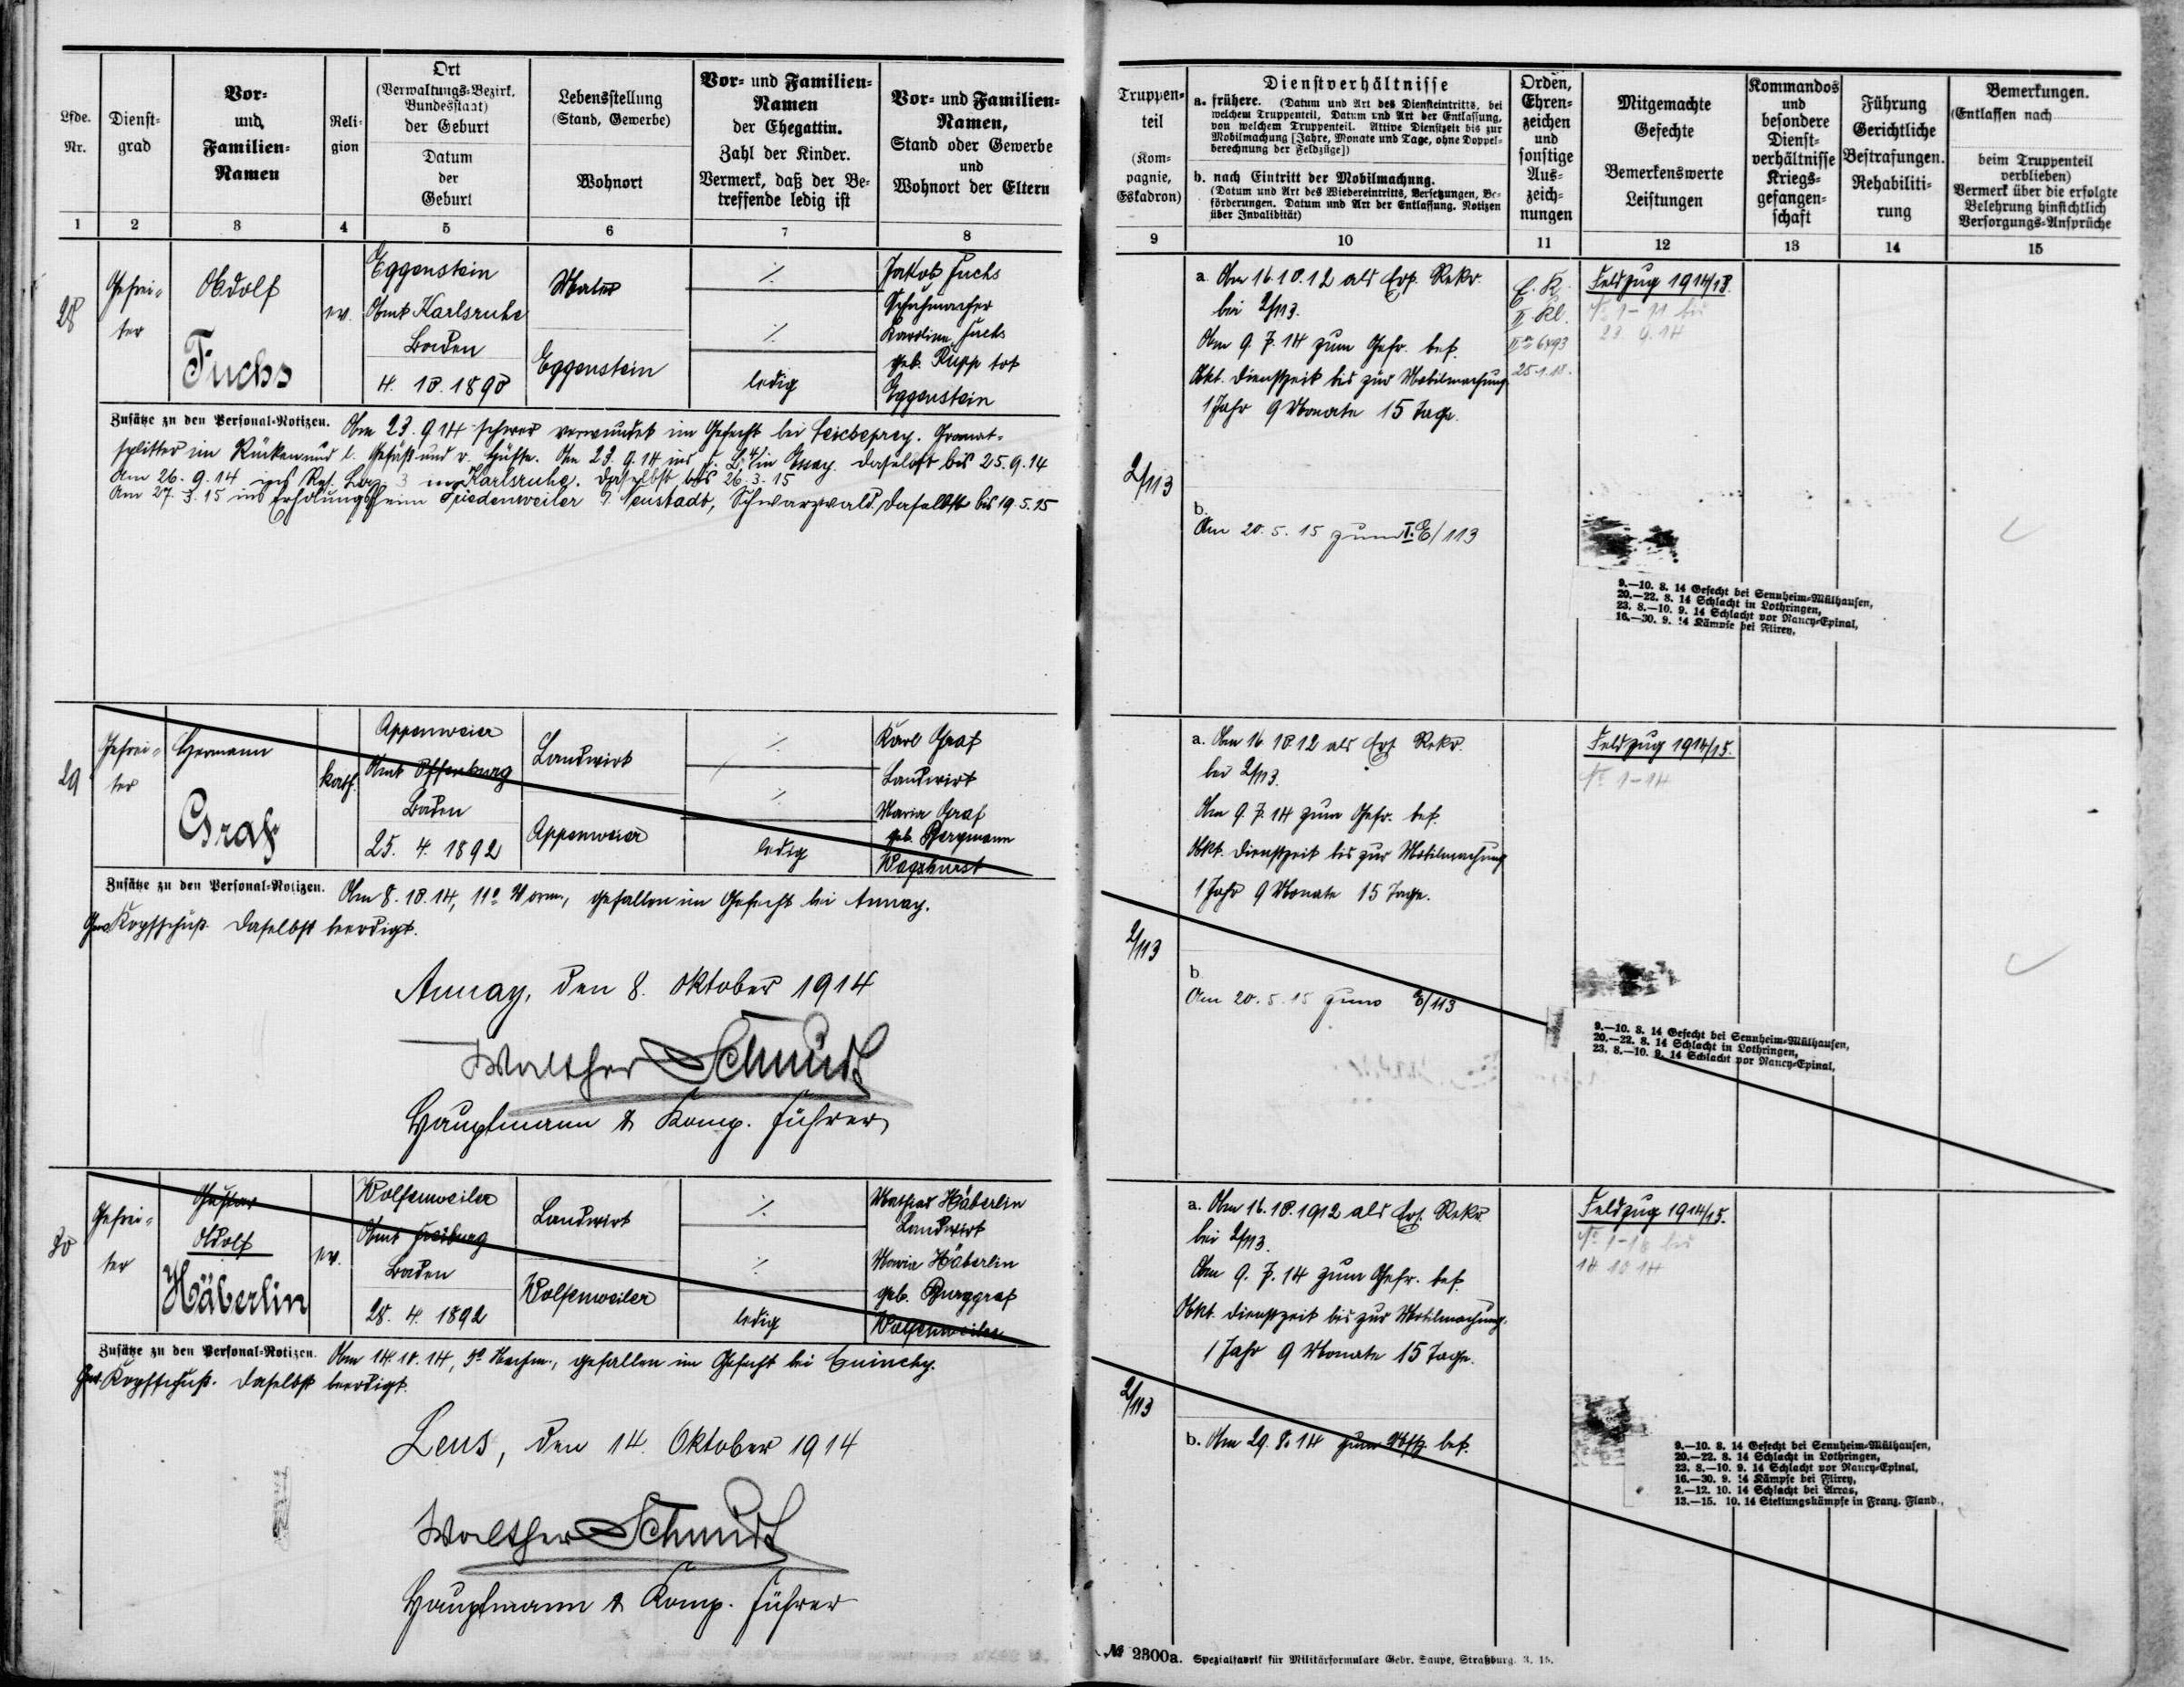 Lfde.
Nr.
Dienst-
grad
Vor-
und
Familien-
Namen
Reli-
gion
Ort
(Verwaltungs-Bezirk,
Bundesstaat)
der Geburt
Datum
der
Geburt
Lebensstellung
(Stand, Gewerbe)
Wohnort
Vor- und Familien-
Namen
der Ehegattin.
Zahl der Kinder.
Vermerk, daß der Be-
treffende ledig ist
Vor- und Familien-
Namen,
Stand oder Gewerbe
und
Wohnort der Eltern
1 2 3 4 5 6 7 8
28
Gefrei-
ter
Adolf
Fuchs
ev.
Eggenstein
Amt Karlsruhe
Baden
4. 10. 1890
Maler
Eggenstein
%
%
ledig
Jakob Fuchs
Schuhmacher
Karoline Fuchs
geb. Rupp tot
Eggenstein
Zusätze zu den Personal-Notizen. Am 23. 9 14 schwer verwundet im Gefecht bei Seicheprey. Granat-
splitter im Rücken und l. Gesäß und r. Hüfte. Am 23. 9. 14 ins in Essey. daselbst bis 25. 9. 14
Am 26. 9. 14 ins Res. Laz. 3 Karlsruhe. daselbst bis 26. 3. 15
Am 27. 3. 15 ins Erholungsheim Friedenweiler Neustadt, Schwarzwald. daselbst bis 19. 5. 15
29
Gefrei-
ter
Hermann
Graf
kath.
Appenweier
Amt Offenburg
Baden
25. 4. 1892
Landwirt
Appenweier
%
%
ledig
Karl Graf
Landwirt
Maria Graf
geb. Bergmann
Wagshurst
Zusätze zu den Personal-Notizen. Am 8. 10. 14, 11° Vorm., gefallen im Gefecht bei Annay.
Kopfschuß. daselbst beerdigt.
Annay, den 8. Oktober 1914
Walther Schmidt
Hauptmann & Komp. Führer
30
Gefrei-
ter
Gustav
Adolf
Häberlin
ev.
Wolfenweiler
Amt Freiburg
Baden
28. 4. 1892
Landwirt
Wolfenweiler
%
%
ledig
Mathias Häberlin
Landwirt
Maria Häberlin
geb. Burggraf
Wolfenweiler
Zusätze zu den Personal-Notizen. Am 14. 10. 14, 5° Nachm., gefallen im Gefecht bei Cuinchy.
Kopfschuß. daselbst beerdigt.
Lens, den 14. Oktober 1914
Walther Schmidt
Hauptmann & Komp. Führer
Truppen-
teil
(Kom-
pagnie,
Eskadron)
Dienstverhältnisse
a. frühere. (Datum und Art des Diensteintritts, bei
welchem Truppenteil, Datum und Art der Entlassung,
von welchem Truppenteil. Aktive Dienstzeit bis zur
Mobilmachung [Jahre, Monate und Tage, ohne Doppel-
berechnung der Feldzüge])
b. nach Eintritt der Mobilmachung.
(Datum und Art des Wiedereintritts, Versetzungen, Be-
förderungen. Datum und Art der Entlassung. Notizen
über Invalidität)
Orden,
Ehren-
zeichen
und
sonstige
Aus-
zeich-
nungen
Mitgemachte
Gefechte
Bemerkenswerte
Leistungen
Kommandos
und
besondere
Dienst-
verhältnisse
Kriegs-
gefangen-
schaft
Führung
Gerichtliche
Bestrafungen.
Rehabiliti-
rung
Bemerkungen.
(Entlassen nach
beim Truppenteil
verblieben)
Vermerk über die erfolgte
Belehrung hinsichtlich
Versorgungs-Ansprüche
9 10 11 12 13 14 15
2/113
a. Am 16. 10. 12 als Ers. Rekr.
bei 2/113.
Am 9. 7. 14 zum Gefr. bef.
Akt. Dienstzeit bis zur Mobilmachung
1 Jahr 9 Monate 15 Tage.
b.
Am 20. 5. 15 zum I. E/113
E. K.
II. Kl.
25. 1. 18.
Feldzug 1914/18.
No 1-11 bis
23. 9. 14
9.—10. 8. 14 Gefecht bei Sennheim-Mülhausen,
20.—22. 8. 14 Schlacht in Lothringen,
23. 8.—10. 9. 14 Schlacht vor Nancy-Epinal,
16.—30. 9. 14 Kämpfe bei Flirey,
2/113
a. Am 16. 10 12 als Ers. Rekr.
bei 2/113.
Am 9. 7. 14 zum Gefr. bef.
Akt. Dienstzeit bis zur Mobilmachung
1 Jahr 9 Monate 15 Tage.
b
Am 20. 5. 15 zum E/113
Feldzug 1914/15.
No 1-14
9.—10. 8. 14 Gefecht bei Sennheim-Mülhausen,
20.—22. 8. 14 Schlacht in Lothringen,
23. 8.—10. 9. 14 Schlacht vor Nancy-Epinal,
2/113
a. Am 16. 10. 1912 als Ers. Rekr.
bei 2/113.
Am 9. 7. 14 zum Gefr. bef.
Akt. Dienstzeit bis zur Mobilmachung.
1 Jahr 9 Monate 15 Tage.
b. Am 29. 8. 14 zum Utffz. bef.
Feldzug 1914/15.
No 1-16 bis
14 10 14
9.—10. 8. 14 Gefecht bei Sennheim-Mülhausen,
20.—22. 8. 14 Schlacht in Lothringen,
23. 8.—10. 9. 14 Schlacht vor Nancy-Epinal,
16.—30. 9. 14 Kämpfe bei Flirey,
2.—12. 10. 14 Schlacht bei Arras,
13.—15. 10. 14 Stellungskämpfe in Franz. Fland.,
№ 2300a. Spezialfabrik für Militärformulare Gebr. Saupe, Straßburg. 3. 15.